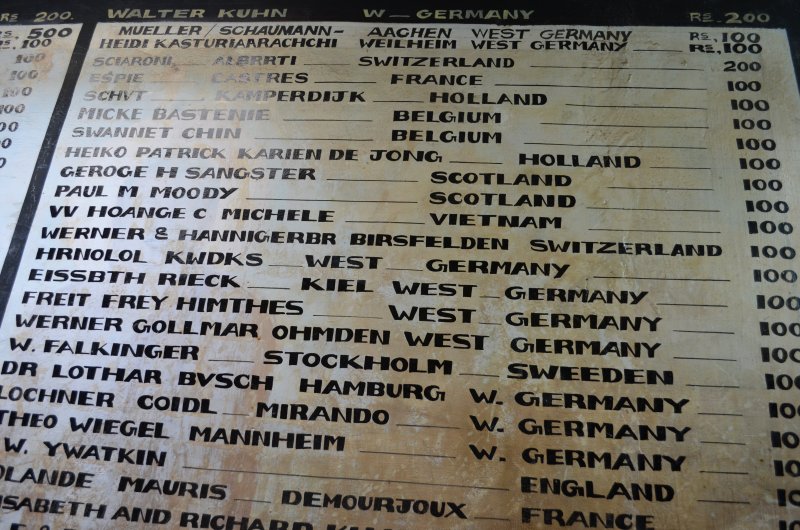 RS. 200. WALTER KUHN W – GERMANY RS. 200
RS. 500 MUELLER/SCHAUMANN- AACHEN WEST GERMANY RS. 100
RS. 100 HEIDI KASTURIAARACHCHI WEILHEIM WEST GERMANY RS. 100
100 SCIARONI ALBRRTI SWITZERLAND 200
100 ESPIE CASTRES FRANCE 100
100 SCHVT KAMPERDIJK HOLLAND 100
100 MICKE BASTENIE BELGIUM 100
SWANNET CHIN BELGIUM 100
HEIKO PATRICK KARIEN DE JONG HOLLAND 100
GEROGE H SANGSTER SCOTLAND 100
PAUL M MOODY SCOTLAND 100
VV HOANGE C MICHELE VIETNAM 100
WERNER & HANNIGERBR BIRSFELDEN SWITZERLAND 100
HRNOLOL KWDKS WEST GERMANY 100
EISSBTH RIECK KIEL WEST GERMANY 100
FREIT FREY HIMTHES WEST GERMANY 100
WERNER GOLLMAR OHMDEN WEST GERMANY 100
W. FALKINGER STOCKHOLM SWEEDEN 100
DR LOTHAR BVSCH HAMBURG W. GERMANY
LOCHNER GOIDL MIRANDO W. GERMANY
THEO WIEGEL MANNHEIM W. GERMANY
W. YWATKIN ENGLAND
MAURIS DEMOURJOUX FRANCE
AND RICHARD